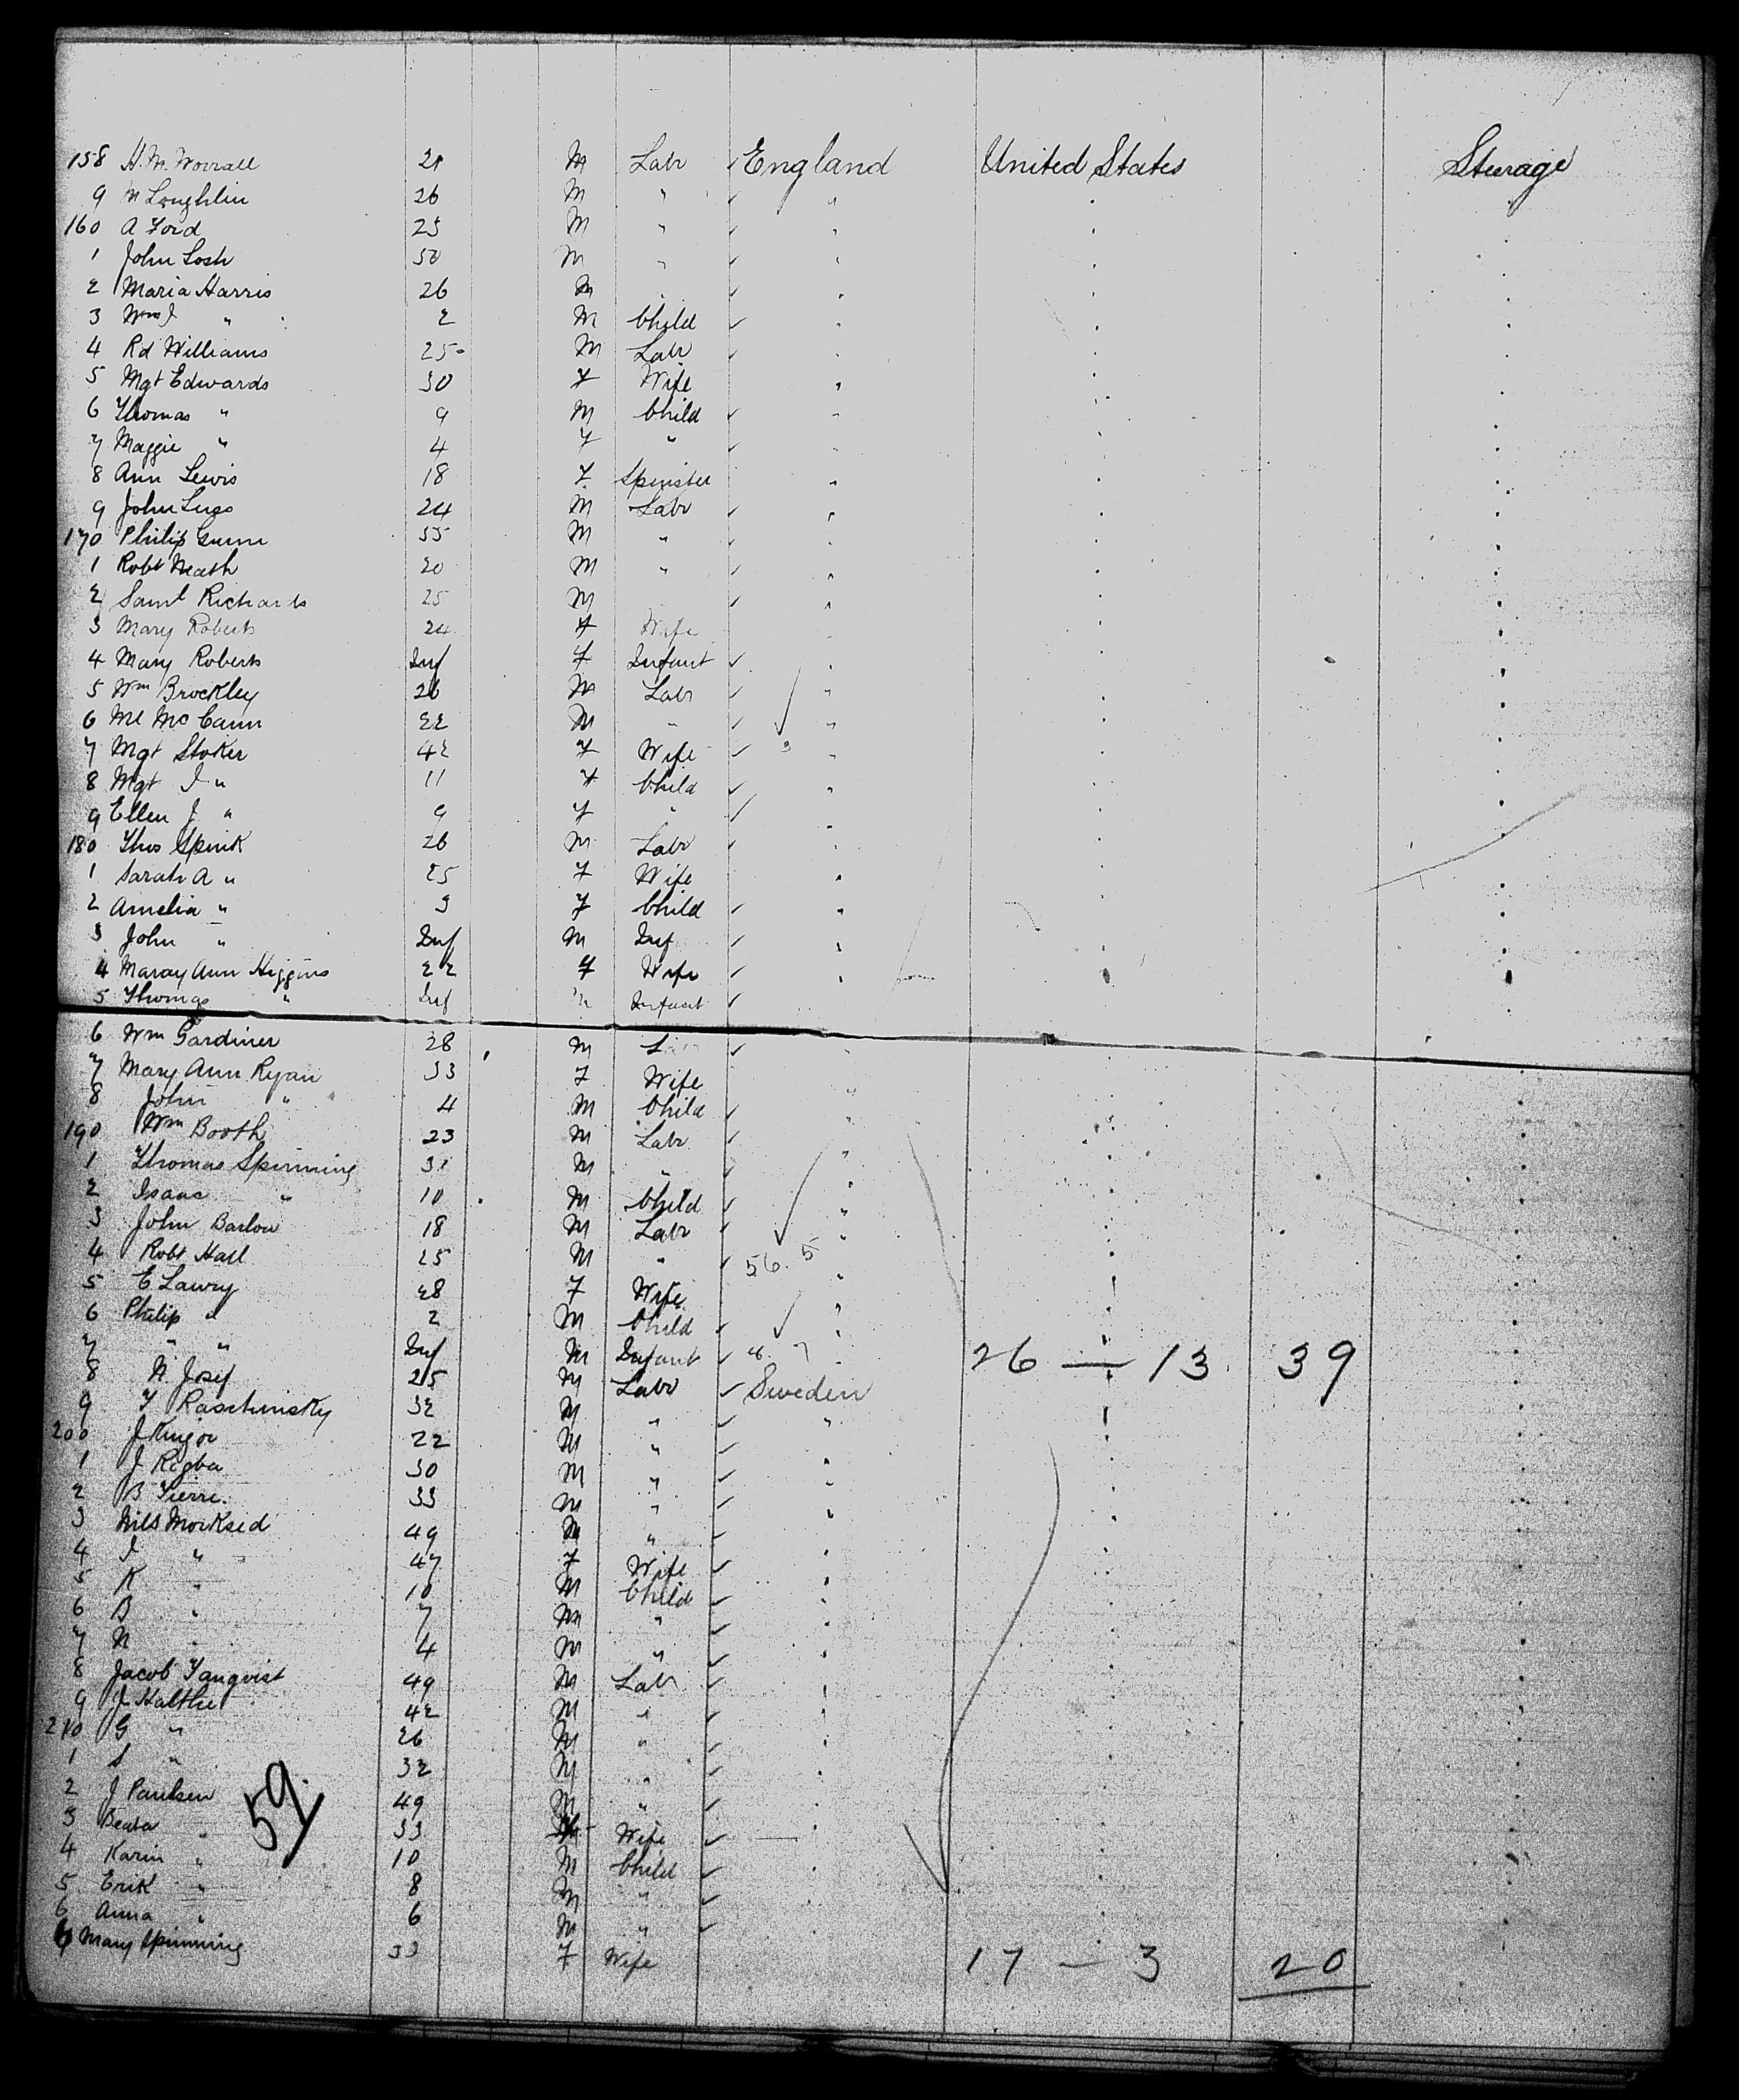 158 H. M. Worrall 21 M Labr England United States Steerage
9 M Loughlin 26 M " "
160 A Ford 25 M " "
1 John Losh 50 M " "
2 Maria Harris 26 M "
3 Wm J " 2 M Child "
4 Rd Williams 25 M Labr "
5 Mgt Edwards 30 F Wife "
6 Thomas " 9 M Child "
7 Maggie " 4 F " "
8 Ann Lewis 18 F Spinster "
9 John 24 M Labr "
170 Philip Gunn 55 M " "
1 Robt Neath 20 M " "
2 Saml Richards 25 M "
3 Mary Roberts 24 F Wife
4 Mary Roberts Inf F Infant "
5 Wm Brockley 26 M Labr "
6 Ml McCann 22 M " "
7 Mgt Stoker 42 F Wife "
8 Mgt J " 11 F Child "
9 Ellen J " 9 F " "
180 Thos Spink 26 M Labr "
1 Sarah A " 25 F Wife "
2 Amelia " 3 F Child "
3 John " Inf M Inf "
4 Maray Ann Higgins 22 F Wife "
5 Thomas " Inf M Infant
6 Wm Gardiner 28 M "
7 Mary Ann Ryan 33 F Wife "
8 John " 4 M Child "
190 Wm Booth 23 M Labr
1 Thomas Spinning 31 M " "
2 Isaac " 10 M Child "
3 John Barlow 18 M Labr "
4 Robt Hall 25 M " 56. 5 "
5 E Lawry 28 F Wife "
6 Philip " 2 M Child "
7 " " Inf M Infant 26 — 13 39
8 N Josef 25 M Labr Sweden
9 F Raschinsky 32 M " "
200 J 22 M " "
1 J Rigba 30 M " "
2 B Fierre. 33 M " "
3 Nils Morksed 49 M " "
4 I " 47 F Wife "
5 K " 10 M Child "
6 B " 7 M " "
7 N " 4 M " "
8 Jacob Tanqvist 49 M Labr "
9 J Kalthe 42 M " "
210 G " 26 M " "
1 S " 32 M " "
2 J Paulsen 49 M " "
59
3 Beata " 33 Wife "
4 Karin " 10 M Child "
5 Erik " 8 M " "
6 Anna " 6 M "
7 Mary Spinning 33 F Wife 17 — 3 20